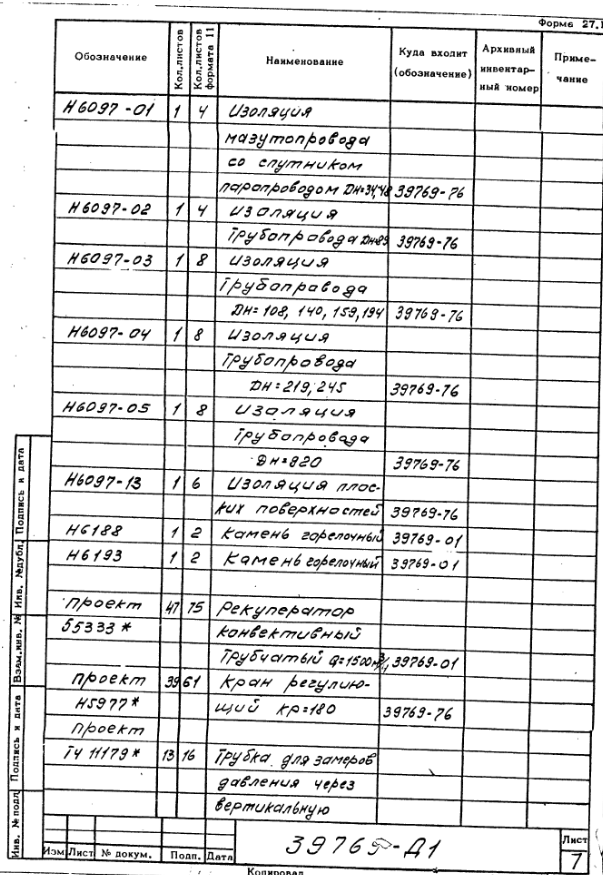 Форма 27.1
Обозначение Кол.листов Кол.листов формата 11 Наименование Куда входит (обозначение) Архивный инвентарный номер Примечание
Н6097-01 1 4 Изоляция
мазутопровода
со спутником
паропроводом Дн=34,48 39769-76
Н6097-02 1 4 Изоляция
Трубопровода Дн=89 39769-76
Н6097-03 1 8 Изоляция
Трубопровода
Дн= 108, 140, 159, 194 39769-76
Н6097-04 1 8 Изоляция
Трубопровода
Дн=219, 245 39769-76
Н6097-05 1 8 Изоляция
Трубопровода
Дн=820 39769-76
Н6097-13 1 6 Изоляция плос-
ких поверхностей 39769-76
Н6188 1 2 Камень горелочный 39769-01
Н6193 1 2 Камень горелочный 39769-01
Проект 47 75 Рекуператор
55333* конвективный
Трубчатый q=1500м³/ч 39769-01
Проект 39 61 Кран регулию-
Н5977* щий кр=180 39769-76
Проект
ТЧ 11179* 13 16 Трубка для замеров
давления через
вертикальную
Инв. № подл. Подпись и дата Взам.инв. № Инв. №дубл. Подпись и дата
Изм Лист № докум. Подп. Дата
39769-Д1
Лист
7
Копировал